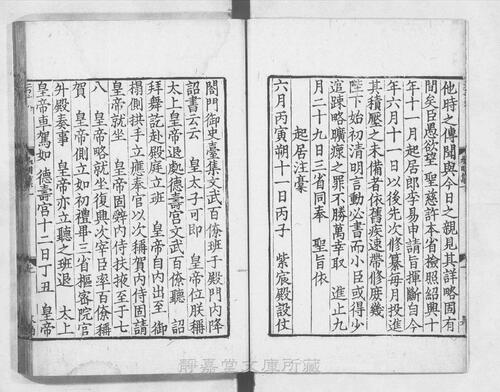 他時之傳聞與今日之親見其詳略固有
間矣臣愚欲望 聖慈許本省檢照紹興十
年十一月起居郎李易申請旨揮斷自今
年六月十一日以後先次修纂每月投進
其積壓之未備者依舊疾速帶修庶幾
陛下始初清明言動必書而小臣或得少
逭踈略曠瘝之罪不勝萬幸取 進止九
月二十九日三省同奉 聖旨依
起居注藁
六月丙寅朔十一日丙子 紫宸殿設仗
閤門御史臺集文武百僚班于殿門内降
詔書云云 皇太子可即 皇帝位朕稱
太上皇帝退處德壽宮文武百僚聽 詔
拜舞訖赴殿庭立班 皇帝自内出至 御
榻側拱手立應奉官以次稱賀内侍固請
皇帝就坐 皇帝固辭内侍扶掖至于七
八 皇帝略就坐復興次宰臣率百僚稱
賀 皇帝側立如初禮畢三省樞密院官
升殿奏事 皇帝亦立聽之班退 太上
皇帝車駕如 德壽宮十二日丁丑 皇帝
靜嘉堂文庫所藏